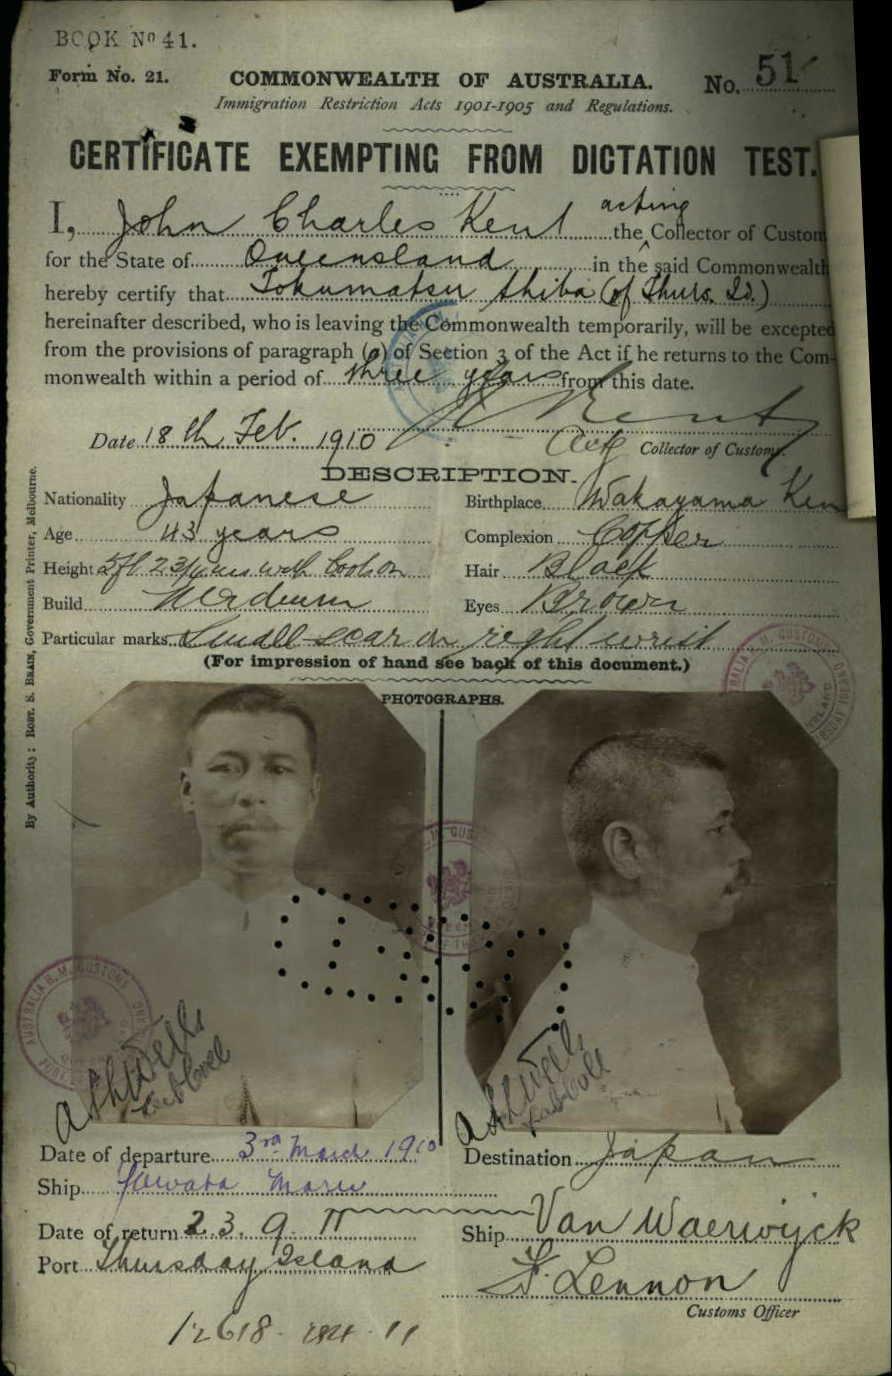 BOOK No 41.
Form No. 21.
COMMONWEALTH OF AUSTRALIA.
No. 51
Immigration Restriction Acts 1901-1905 and Regulations.
CERTIFICATE EXEMPTING FROM DICTATION TEST.
I, John Charles Kent acting the Collector of Custom
for the State of Queensland in the said Commonwealth
hereby certify that Tokumatsu Shiba (of Thurs. Is.)
hereinafter described, who is leaving the Commonwealth temporarily, will be excepted
from the provisions of paragraph (a) of Section 3 of the Act if he returns to the Com-
monwealth within a period of three years from this date.
Date 18th Feb. 1910
J C Kent
Actg Collector of Customs.
DESCRIPTION.
Nationality Japanese
Birthplace Wakayama Ken
Age 43 years
Complexion Copper
Height 5ft 2 3/4 ins with boots on
Hair Black
Build Medium
Eyes Brown
Particular marks Small scar on right wrist
(For impression of hand see back of this document.)
PHOTOGRAPHS.
By Authority: ROBT. S. BRAIN, Government Printer, Melbourne.
Date of departure 3rd March 1910
Destination Japan
Ship Yawata Maru
Date of return 23.9.11
Ship Van Waerwijck
Port Thursday Island
F. Lennon
Customs Officer
12618